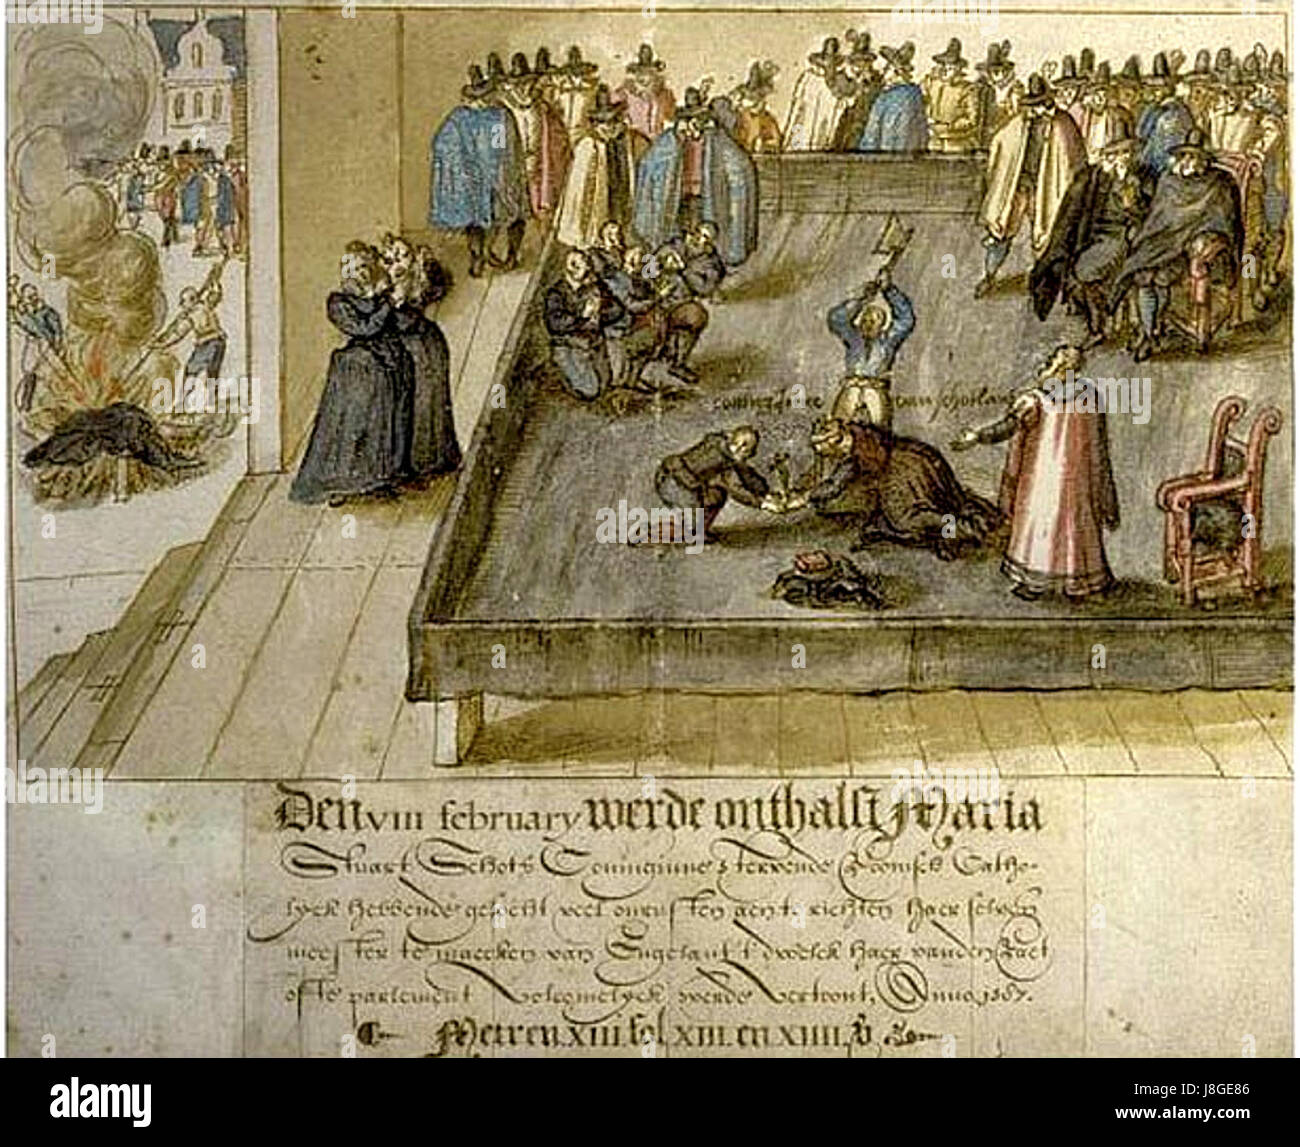 Coninginne van Schotland
Den VIII february werde onthalst Maria
Stuart Schots Coninginne, stervende Roomsch Catho-
lyck hebbende gesocht veel onrusten aen te richten haer selven
meester te maecken van Engelant t' dwelck haer van den Raet
ofte parlement volcomelyck werde vertoont, Anno 1587.
Metren XIII fol XIII en XIIII
alamy
alamy
a
a
a
alamy
Image ID: J8GE86
www.alamy.com